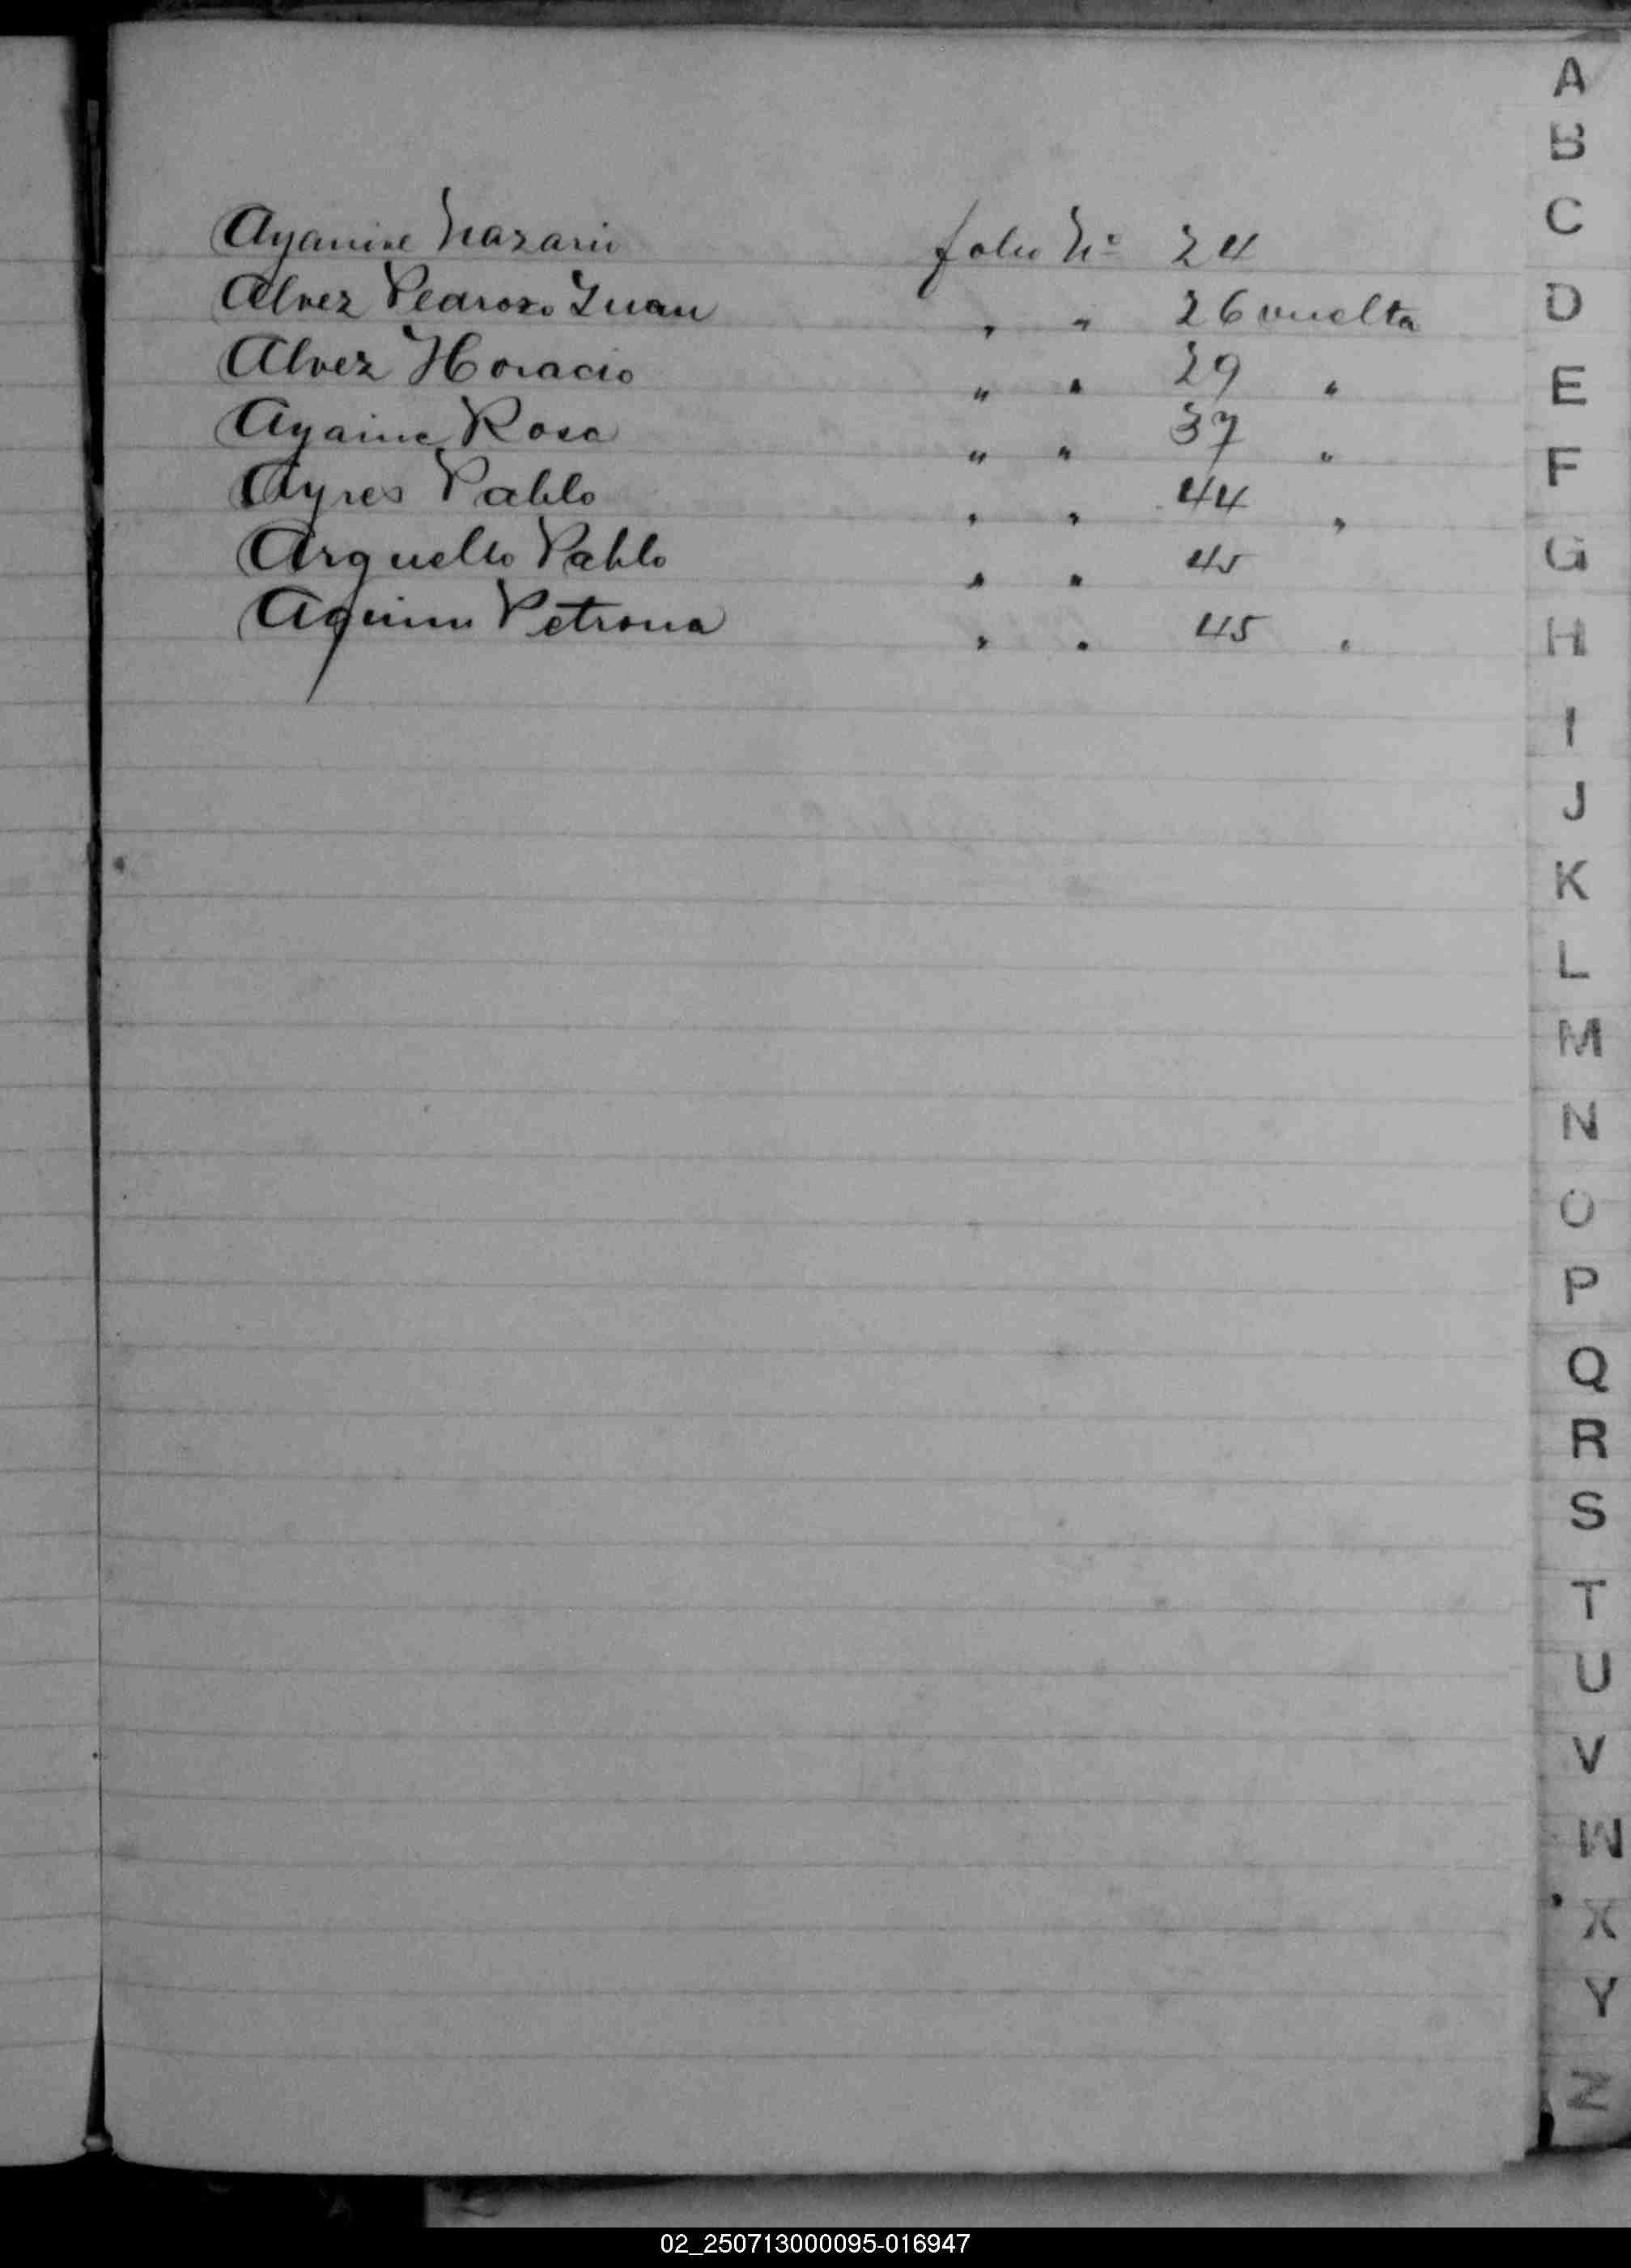 Ayanine Nazario folio Nº 24
Alvez Pedrozo Juan " " 26 vuelta
Alvez Horacio " " 29 "
Ayaine Rosa " " 37 "
Ayres Pablo " " 44 "
Arguello Pablo " " 45
Aquino Petrona " " 45 "
A
B
C
D
E
F
G
H
I
J
K
L
M
N
O
P
Q
R
S
T
U
V
W
X
Y
Z
02_250713000095-016947